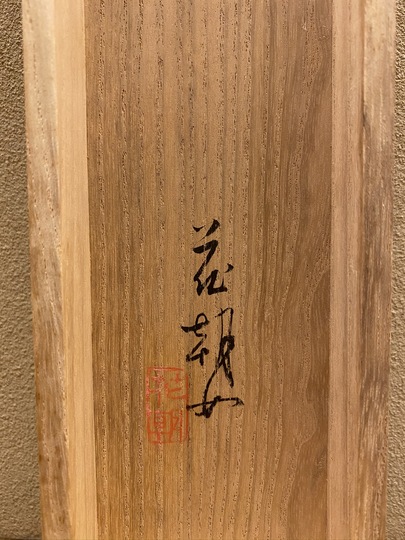 花朝女